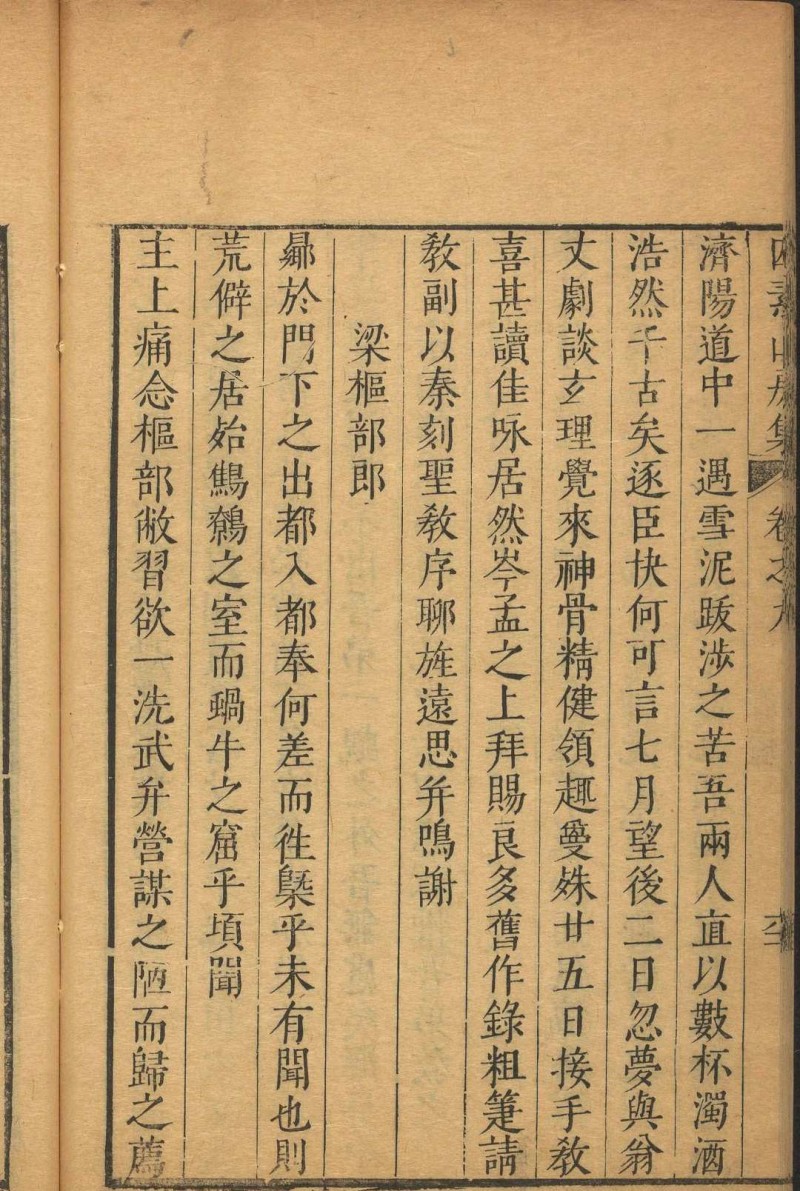 四素山房集 卷之九
濟陽道中一遇雪泥跋涉之苦吾兩人直以數杯濁酒
浩然千古矣逐臣快何可言七月望後二日忽夢與翁
丈劇談玄理覺來神骨精健領趣夐殊廿五日接手教
喜甚讀佳咏居然岑孟之上拜賜良多舊作錄粗箑請
教副以秦刻聖教序聊旌遠思并鳴謝
梁樞部郎
㬎於門下之出都入都奉何差而徃槩乎未有聞也則
荒僻之居始鷦鷯之室而蝸牛之窟乎頃聞
主上痛念樞部敝習欲一洗武弁營謀之陋而歸之薦